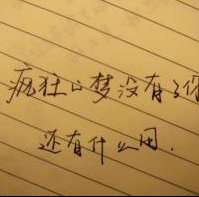 疯狂的梦没有了你
还有什么用.